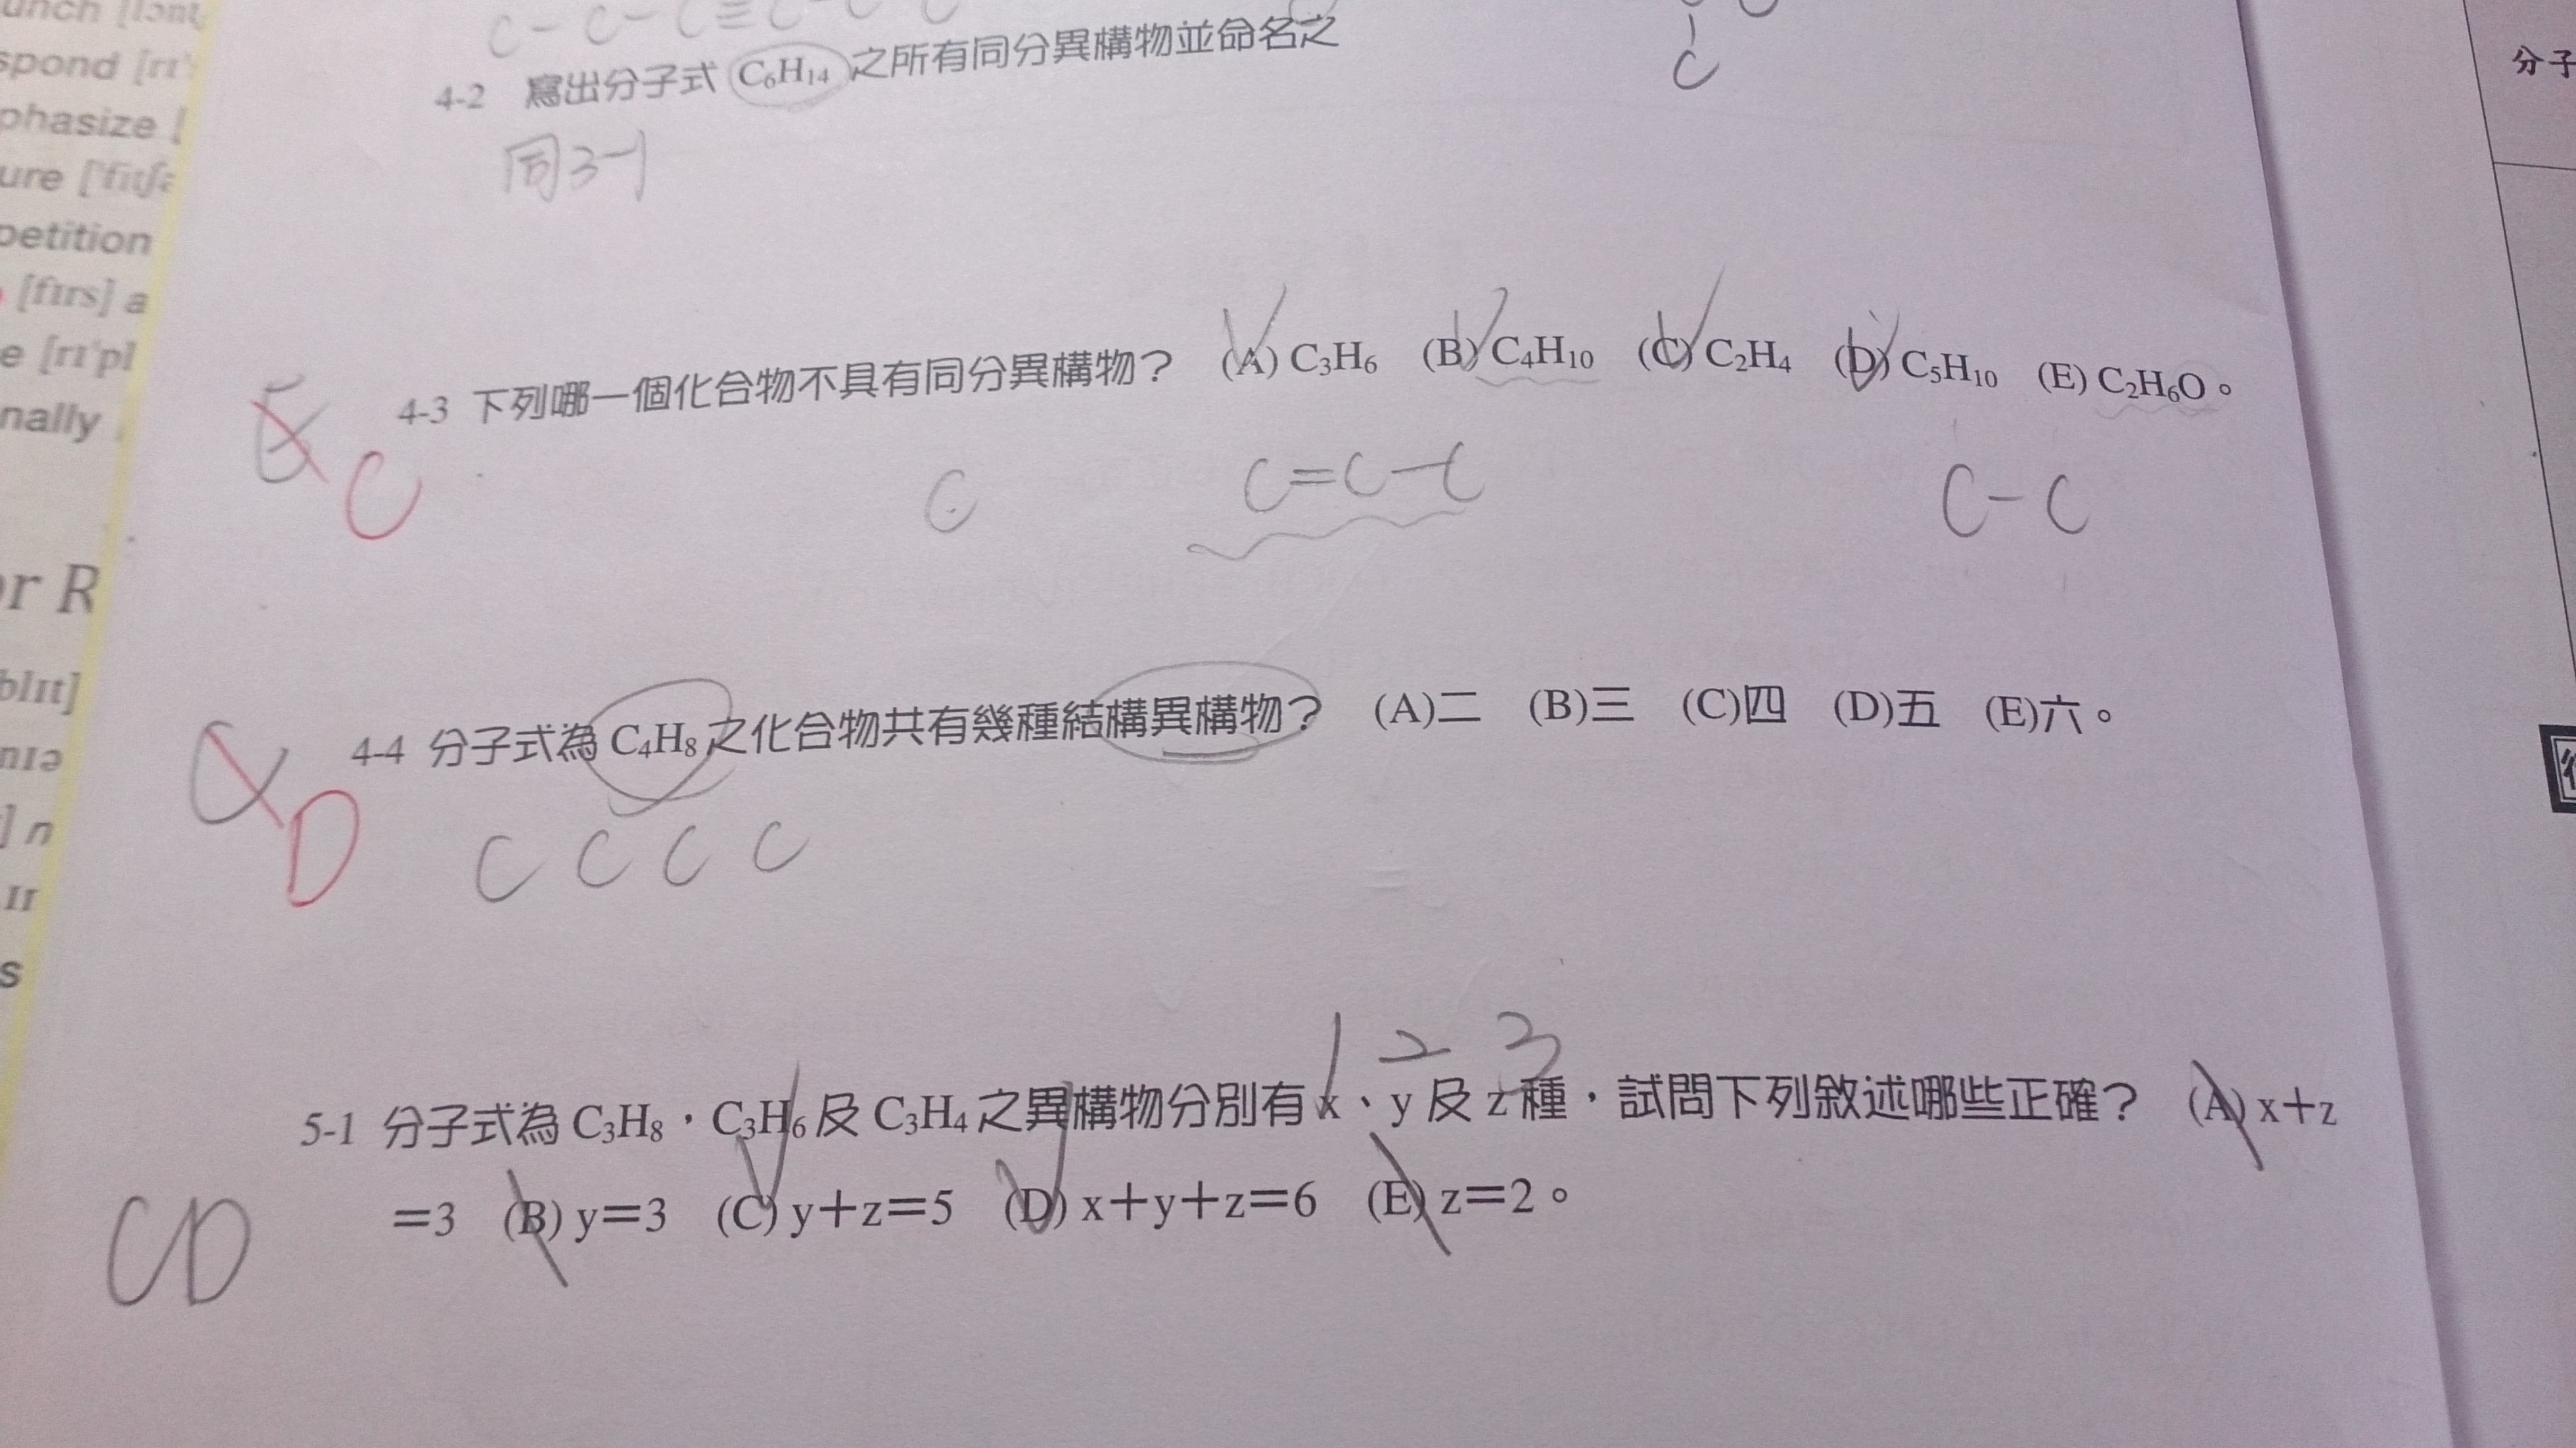 unch [lʌnt
spond [rɪ'
phasize [
ure ['fitʃə
petition
[fɪrs] a
e [rɪ'pl
nally
or R
blɪt]
nɪə
] n
ɪr
s
C-C-C≡C-C C
C
4-2 寫出分子式 C₆H₁₄ 之所有同分異構物並命名之
同3-1
4-3 下列哪一個化合物不具有同分異構物？ (A) C₃H₆ (B) C₄H₁₀ (C) C₂H₄ (D) C₅H₁₀ (E) C₂H₆O。
E C
C C=C-C C-C
4-4 分子式為 C₄H₈ 之化合物共有幾種結構異構物？ (A)二 (B)三 (C)四 (D)五 (E)六。
D
C C C C
1 2 3
5-1 分子式為 C₃H₈，C₃H₆ 及 C₃H₄ 之異構物分別有 x、y 及 z 種，試問下列敘述哪些正確？ (A) x＋z
＝3 (B) y＝3 (C) y＋z＝5 (D) x＋y＋z＝6 (E) z＝2。
CD
分子